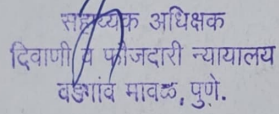 सहाय्यक अधिक्षक
दिवाणी व फौजदारी न्यायालय
वडगांव मावळ, पुणे.